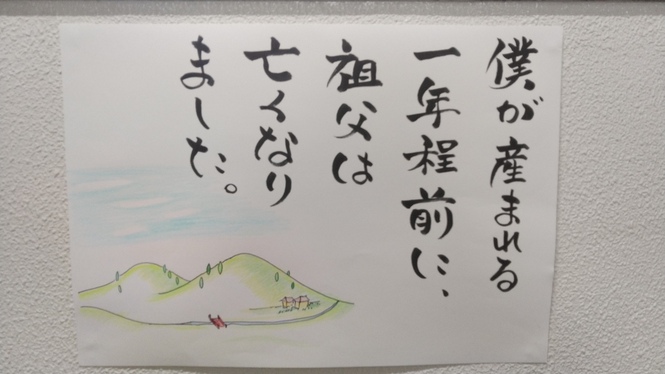 僕が産まれる
一年程前に、
祖父は
亡くなり
ました。